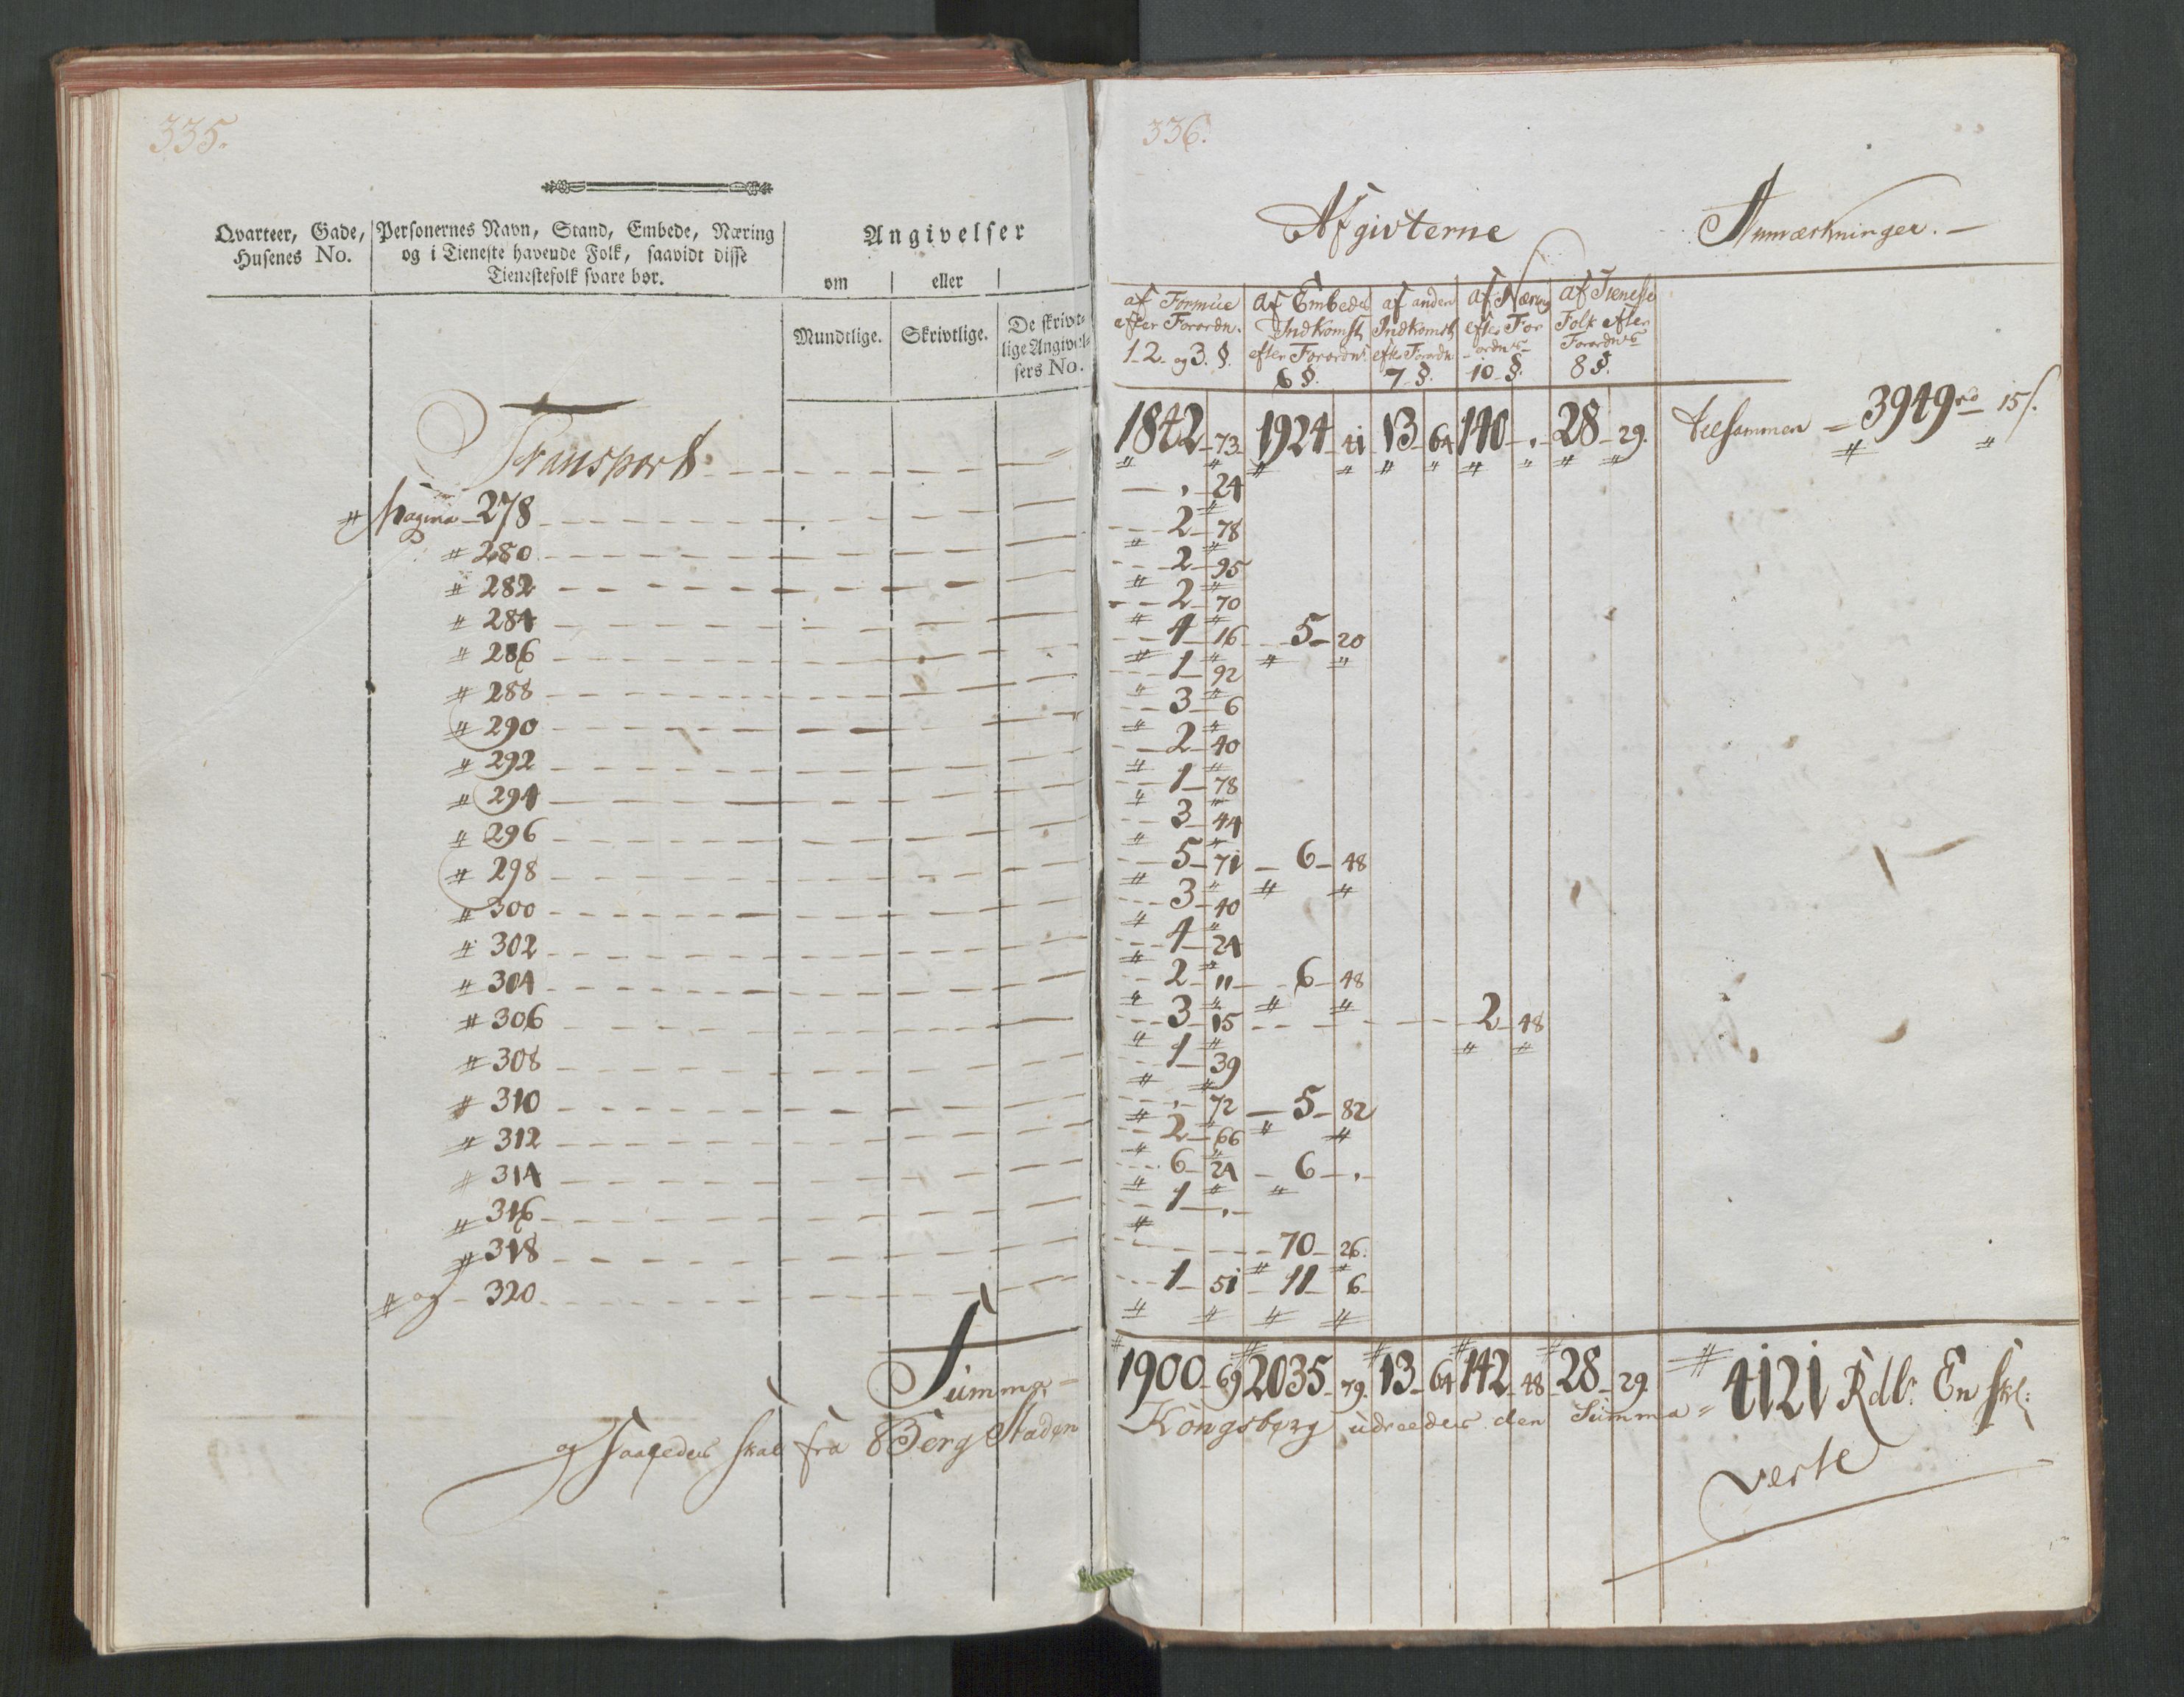 335.
Qvarteer, Gade, Husenes No.
Personernes Navn, Stand, Embede, Næring og i Tieneste havende Folk, saavidt disse Tienestefolk svare bør.
Angivelser
om eller
Mundtlige. Skrivtlige. De skrivtlige Angivelsers No.
Transport
pagina 278
" 280
" 282
" 284
" 286
" 288
" 290
" 292
" 294
" 296
" 298
" 300
" 302
" 304
" 306
" 308
" 310
" 312
" 314
" 316
" 318
" og 320
Summa
og saaledes skal fra Berg Staden
336.
Afgivterne
Anmærkninger.
af Formue efter Forordn. 1-2- og 3. §.
af Embeds Indkomst efter Forordn. 6 §.
af anden Indkomst efter Forordn 7 §.
af Næring efter Forordn. 10 §.
af Tieneste Folk efter Forordn. 8 §.
1842 73 1924 41 13 64 140 , 28 29. tilsammen = 3949 rd 15 s.
, 24
2 78
2 95
2 70
4 16 5 20
1 92
3 6
2 40
1 78
3 44
5 71 6 48
3 40
4 24
2 11 6 48
3 15 2 48
1 39
, 72 5 82
2 66
6 24 6 ,
1 ,
70 26.
1 51 11 6
1900 69 2035 79. 13 64 142 48 28 29. 4121 Rdlr. En skl:
Kongsberg udreedes den Summa =
verte